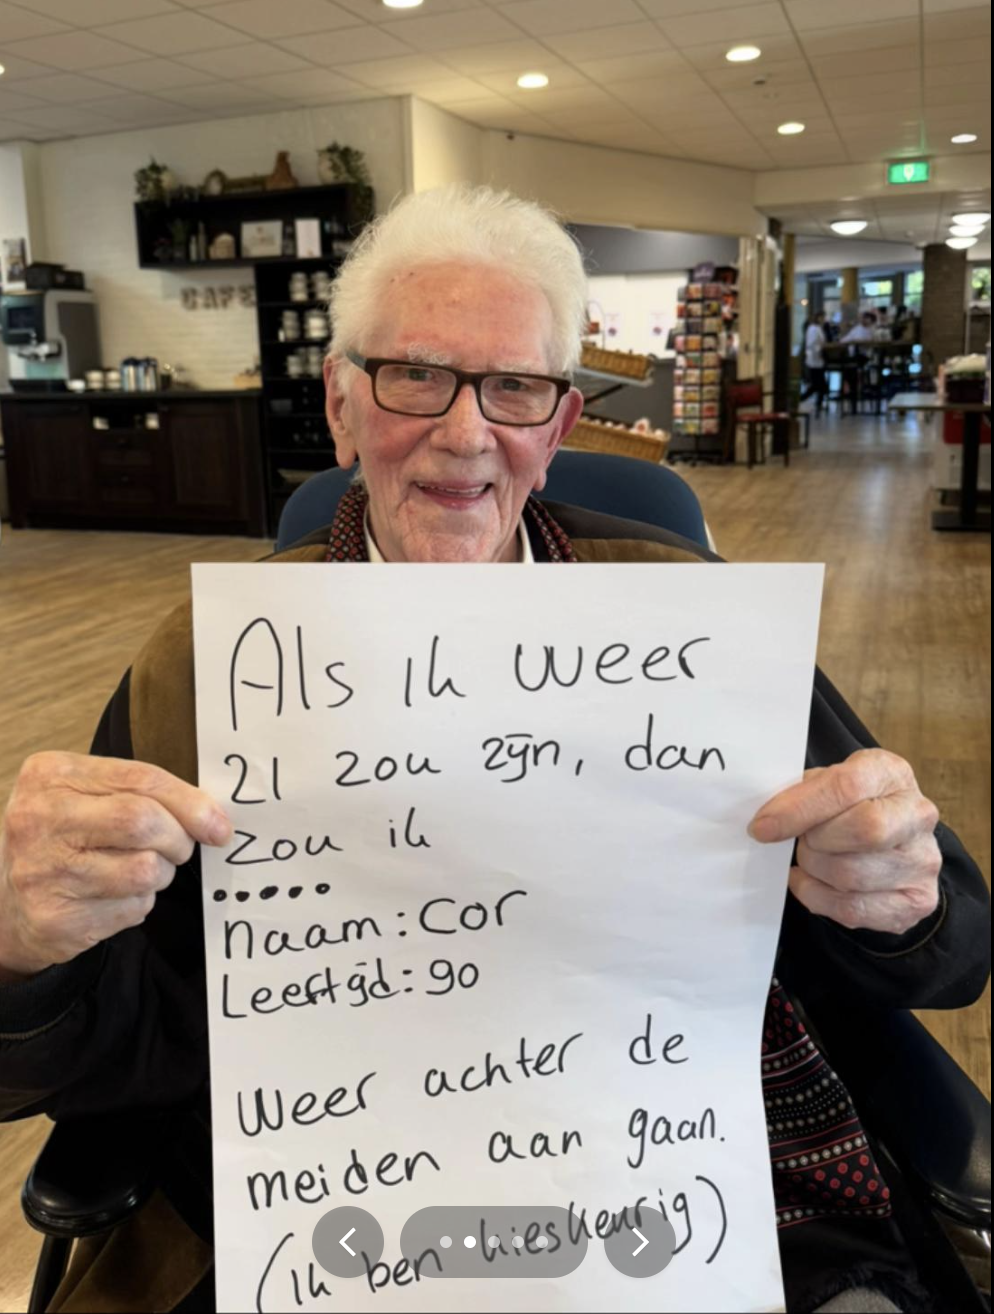 CAFE
Als ik weer
21 zou zijn, dan
zou ik
.....
naam: Cor
Leeftijd: 90
Weer achter de
meiden aan gaan.
(ik ben kieskeurig)